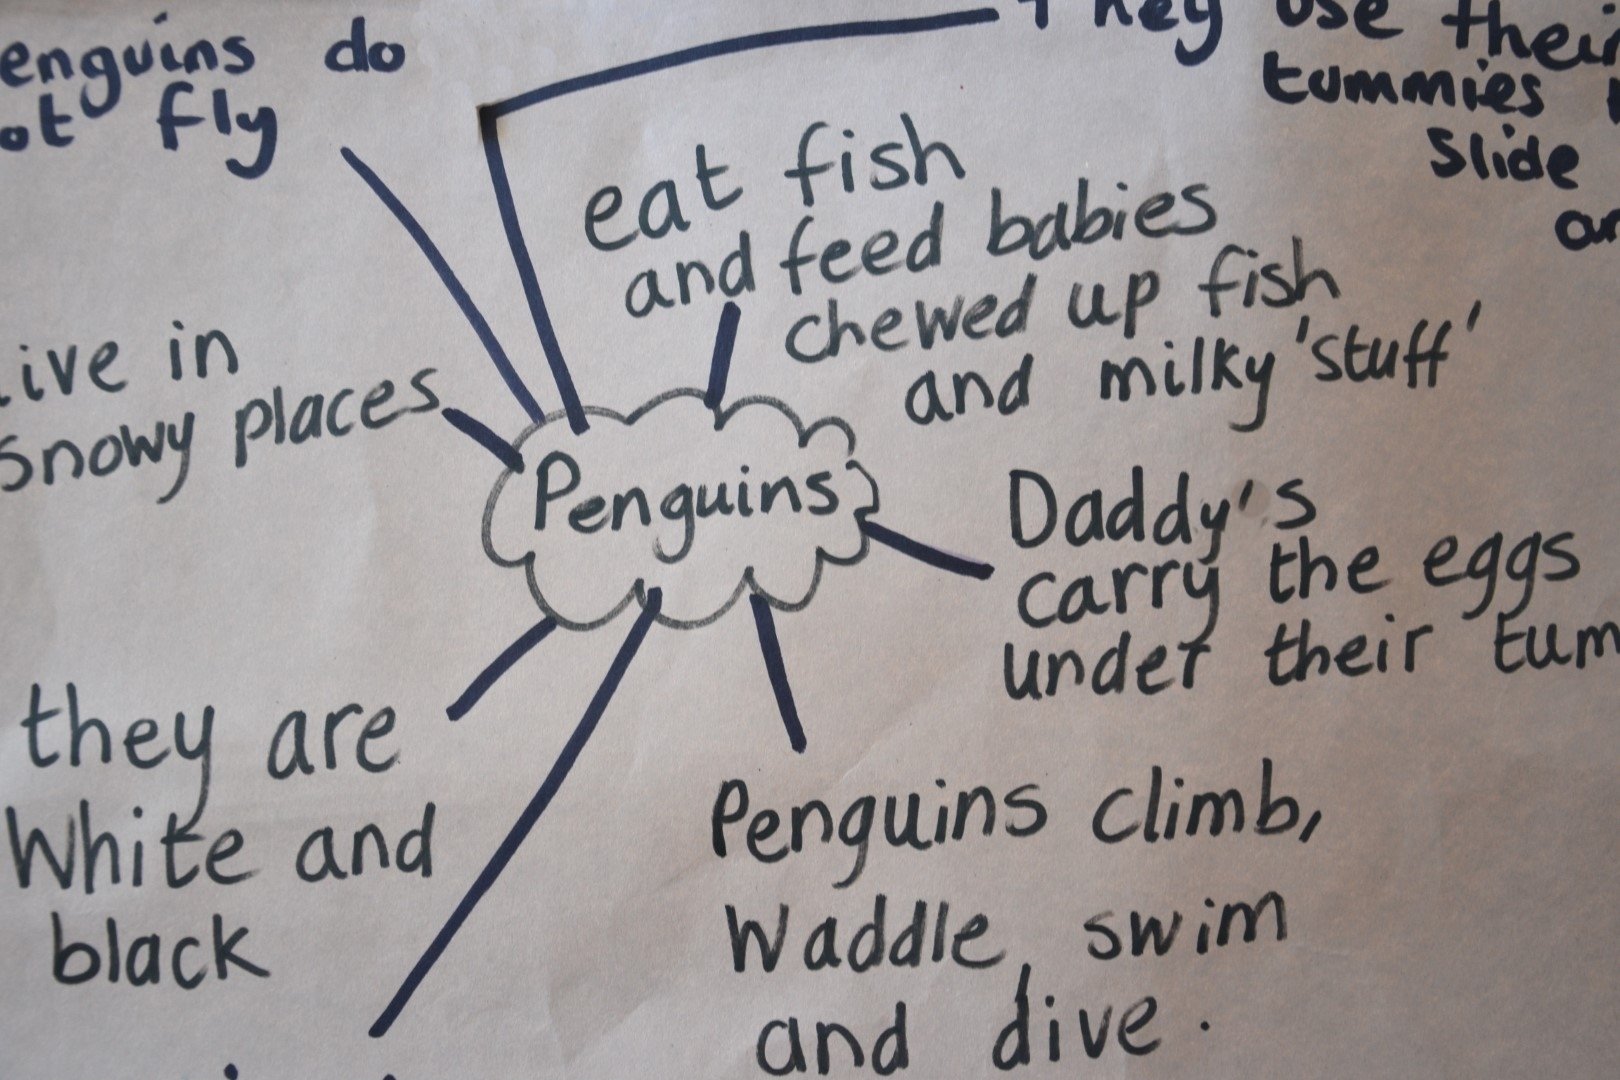 enguins do
ot fly
They use their
tummies
slide
eat fish
and feed babies
chewed up fish
and milky 'stuff'
ive in
snowy places
Penguins
Daddy's
carry the eggs
under their tum
they are
White and
black
Penguins climb,
Waddle, swim
and dive.